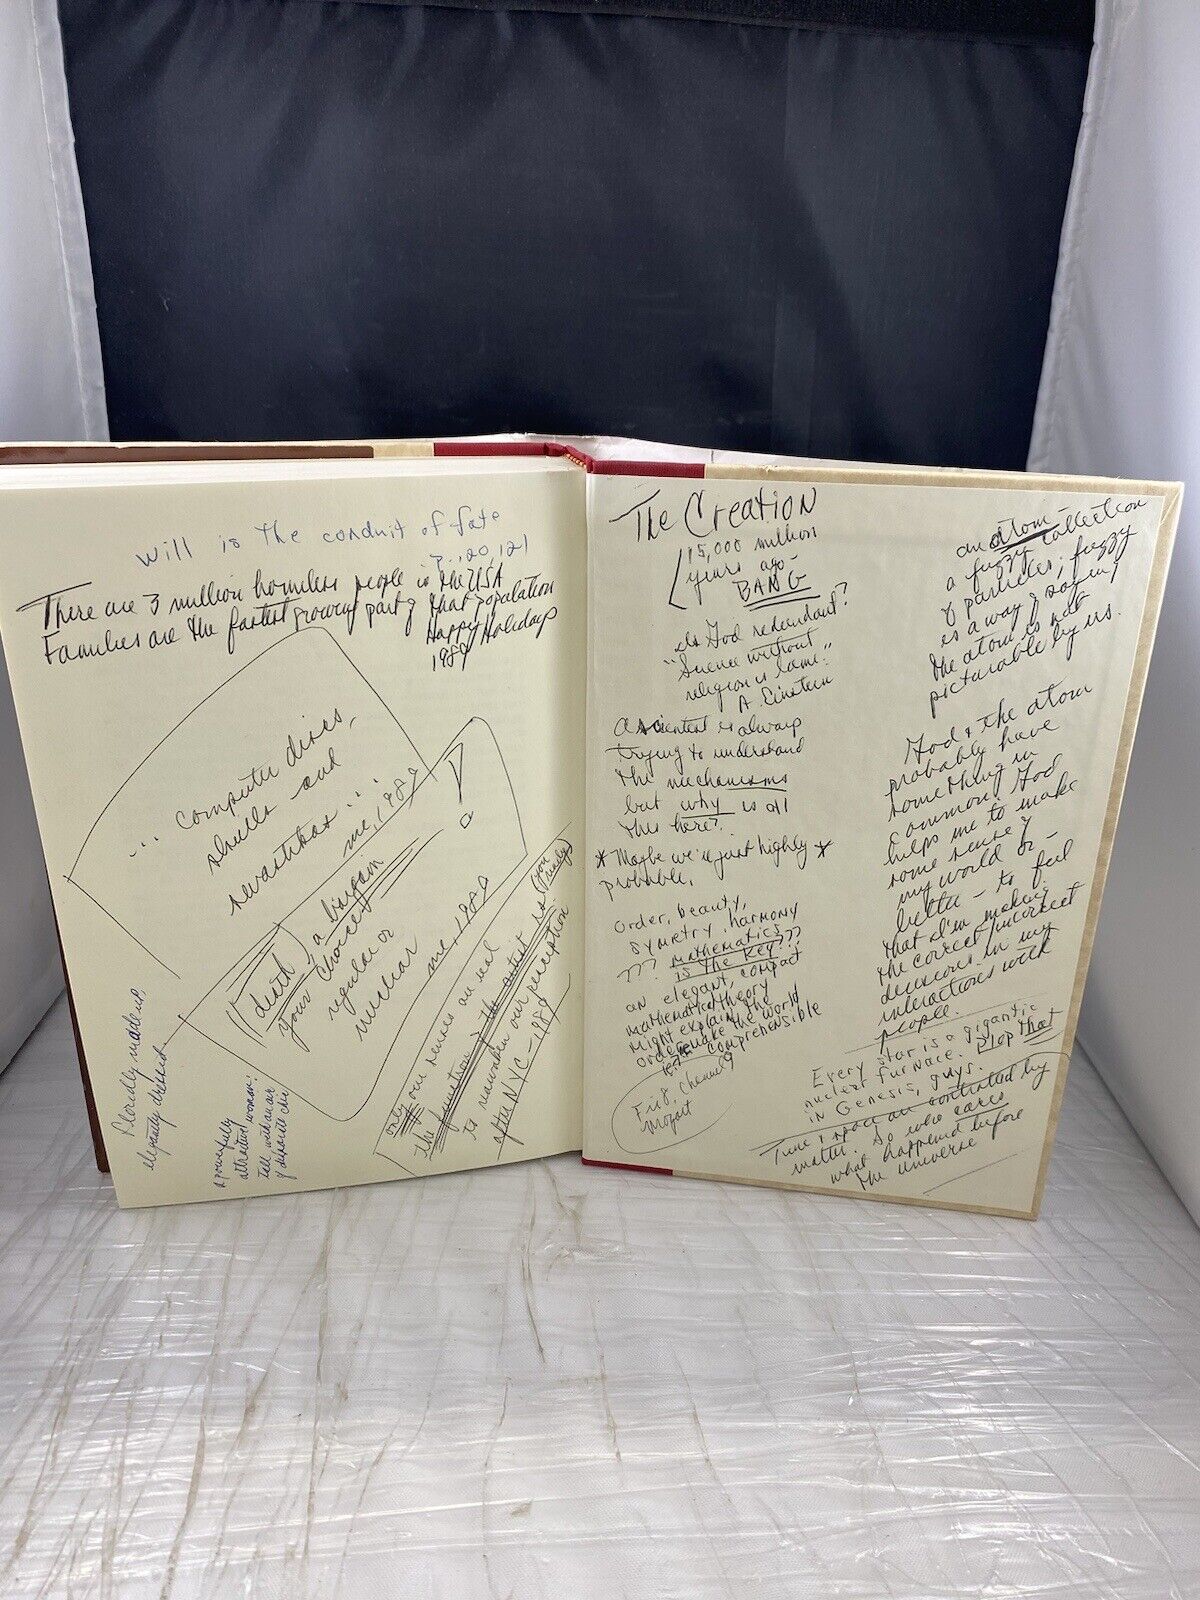 Will is the conduit of fate
p. 120, 121
There are 3 million homeless people in the USA
Families are the fastest growing part of that population
Happy Holidays
1989
... computer discs,
skulls and
swastikas"
me, 1989
"death, a bargain
your choice
regular or
nuclear
me, 1989
only our nerves are real
the function of the artist is
to reawaken our perception
after NYC - 1989
Floridly made up,
elegantly dressed
a powerfully
attractive woman:
tall with an air
of
The Creation
15,000 million
years ago
BANG
Is God redundant?
"Science without
religion is lame."
A. Einstein
a scientist is always
trying to understand
the mechanisms
but why is all
this here?
* Maybe we're just highly *
probable.
order, beauty,
symetry, harmony
??? mathematics
is the key???
an elegant, compact
mathematic theory
might explain the
order make the world
comprehensible
Fri 8, channel 9
Mozart
an atom -
a fuzzy collection
of particles; fuzzy
is a way of saying
the atom is not
picturable by us.
God & the atom
probably have
something in
common: God
helps me to make
some sense of
my world or -
better - to feel
that I'm making
the correct/incorrect
decisions in my
interactions with
people.
Every star is a gigantic
nuclear furnace. Plop that
in Genesis, guys.
Time & space are controlled by
matter. So who cares
what happened before
the universe